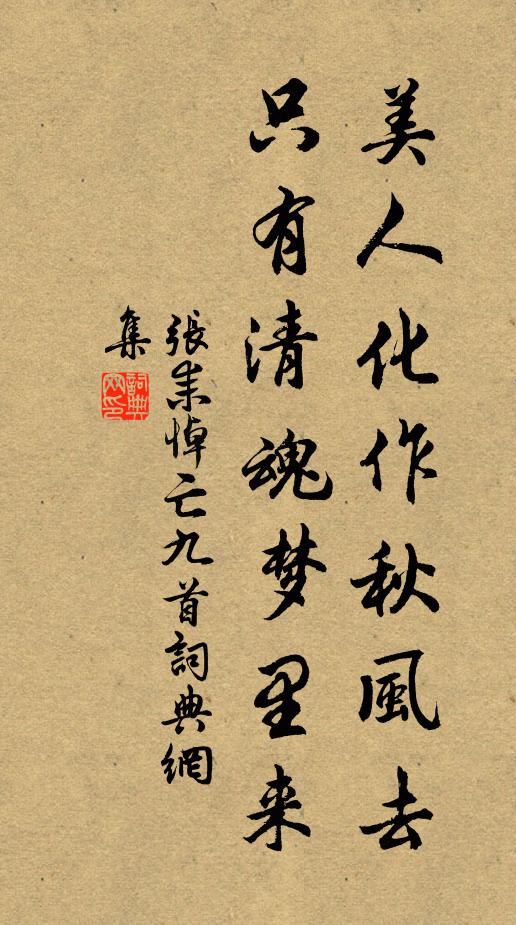 美人化作秋風去
只有清魂梦里来
張耒悼亡九首詞典網
集
詞典網印